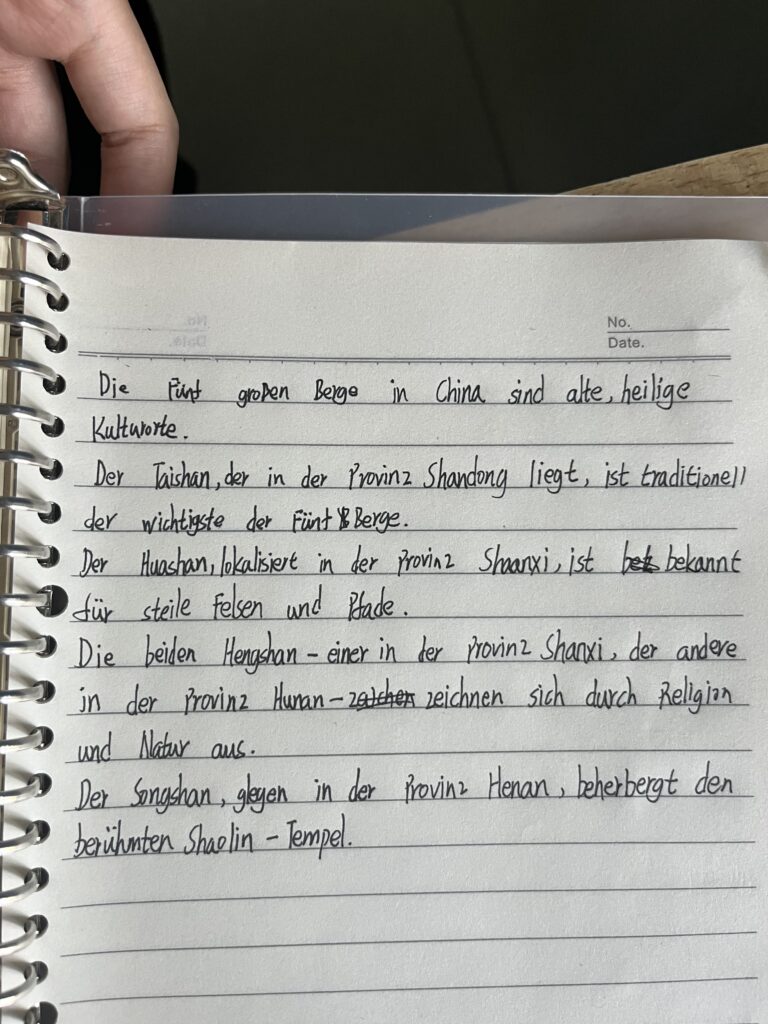 No.
Date.
Die Fünf großen Berge in China sind alte, heilige
Kulturorte.
Der Taishan, der in der Provinz Shandong liegt, ist traditionell
der wichtigste der Fünf Berge.
Der Huashan, lokalisiert in der Provinz Shaanxi, ist bekannt
für steile Felsen und Pfade.
Die beiden Hengshan – einer in der Provinz Shanxi, der andere
in der Provinz Hunan – zeichnen sich durch Religion
und Natur aus.
Der Songshan, glegen in der Provinz Henan, beherbergt den
berühmten Shaolin – Tempel.